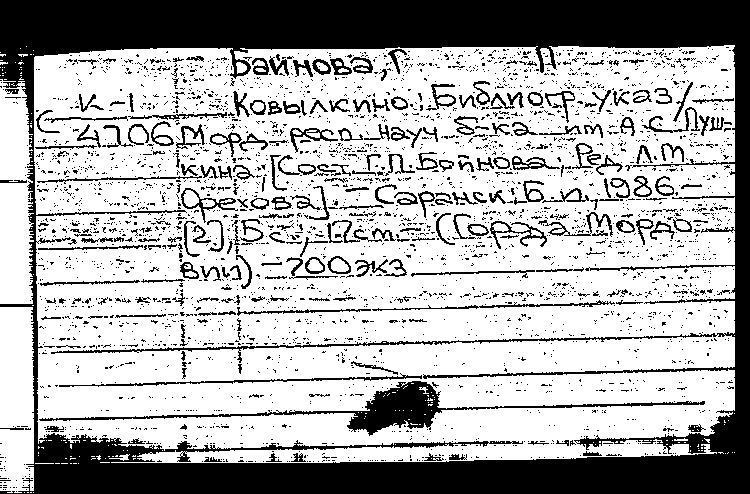 Байнова, Г П
К-1 Ковылкино: Библиогр. указ /
С 4706 Морд. респ. науч. б-ка им. А.С. Пуш-
кина; [Сост. Г.П. Байнова; Ред. Л.М.
Орехова]. - Саранск: Б. и., 1986. -
[2], 5 с.; 17 см. - (Города Мордо-
вии). - 700 экз.